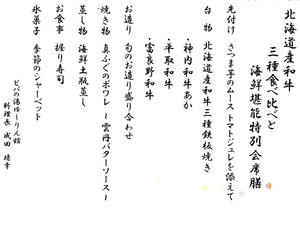 北海道産和牛
三種食べ比べと
海鮮堪能特別会席膳
先付け さつま芋のムース トマトジュレを添えて
台物 北海道産和牛三種鉄板焼き
・神内和牛あか
・平取和牛
・富良野和牛
お造り 旬のお造り盛り合わせ
焼き物 真ふぐのポワレ ～雲丹バターソース～
蒸し物 海鮮土瓶蒸し
お食事 握り寿司
氷菓子 季節のシャーベット
ピパの湯ゆ～りん館
料理長 成田 靖幸